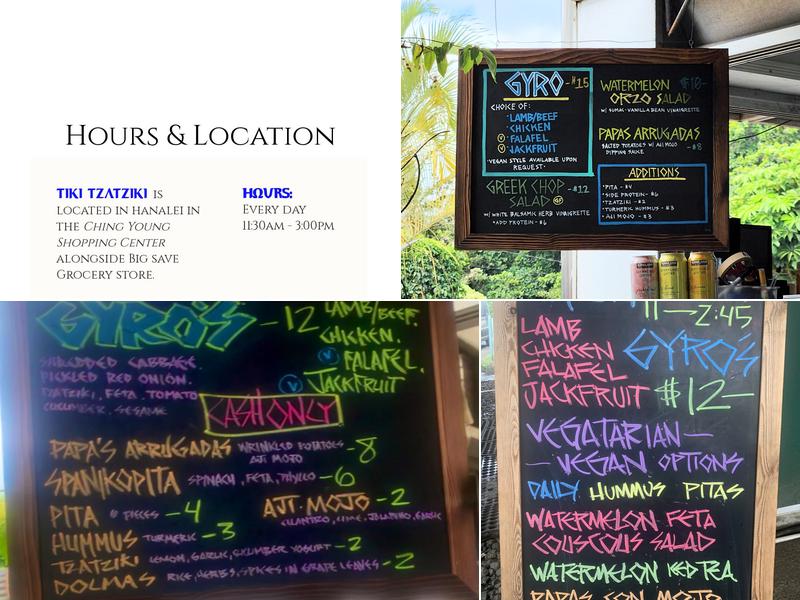 Hours & Location
TIKI TZATZIKI IS
LOCATED IN HANALEI IN
THE CHING YOUNG
SHOPPING CENTER
ALONGSIDE BIG SAVE
GROCERY STORE.
HOURS:
EVERY DAY
11:30AM - 3:00PM
GYRO -$15
CHOICE OF:
·LAMB/BEEF
·CHICKEN
V·FALAFEL
V·JACKFRUIT
·VEGAN STYLE AVAILABLE UPON
REQUEST·
GREEK CHOP -$12
SALAD GF
W/ WHITE BALSAMIC HERB VINAIGRETTE
·ADD PROTEIN -$6
WATERMELON $10-
ORZO SALAD
W/ SUMAC-VANILLA BEAN VINAIGRETTE
PAPAS ARRUGADAS
SALTED POTATOES W/ AJI MOJO -$8
DIPPING SAUCE
ADDITIONS
·PITA -$4
·SIDE PROTEIN-$6
·TZATZIKI -$2
·TURMERIC HUMMUS -$3
·AJI MOJO -$3
GYRO'S -12
SHREDDED CABBAGE.
PICKLED RED ONION.
TZATZIKI, FETA, TOMATO
CUCUMBER, SESAME
LAMB/BEEF.
CHICKEN.
V FALAFEL.
V JACKFRUIT
CASH ONLY
PAPA'S ARRUGADAS WRINKLED POTATOES -8
AJI MOJO
SPANIKOPITA SPINACH, FETA, PHYLLO -6
PITA 8 PIECES -4
AJI-MOJO -2
CILANTRO, LIME, JALAPIÑO, GARLIC
HUMMUS TURMERIC -3
TZATZIKI LEMON, GARLIC, CUCUMBER YOGURT -2
DOLMAS RICE, HERBS, SPICES IN GRAPE LEAVES -2
11—2:45
LAMB
CHICKEN
FALAFEL
JACKFRUIT
GYRO'S
$12—
VEGATARIAN—
—VEGAN OPTIONS
DAILY HUMMUS PITAS
WATERMELON FETA
COUSCOUS SALAD
WATERMELON ICED TEA
PAPAS CON MOJO